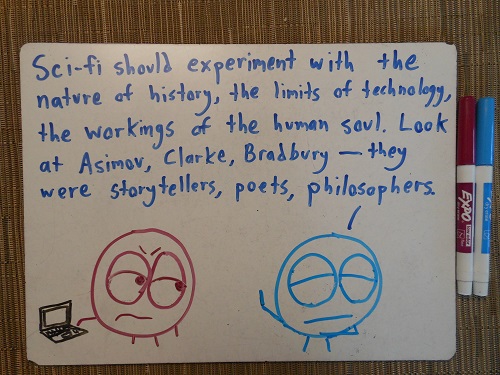 Sci-fi should experiment with the
nature of history, the limits of technology,
the workings of the human soul. Look
at Asimov, Clarke, Bradbury — they
were storytellers, poets, philosophers.
EXPO